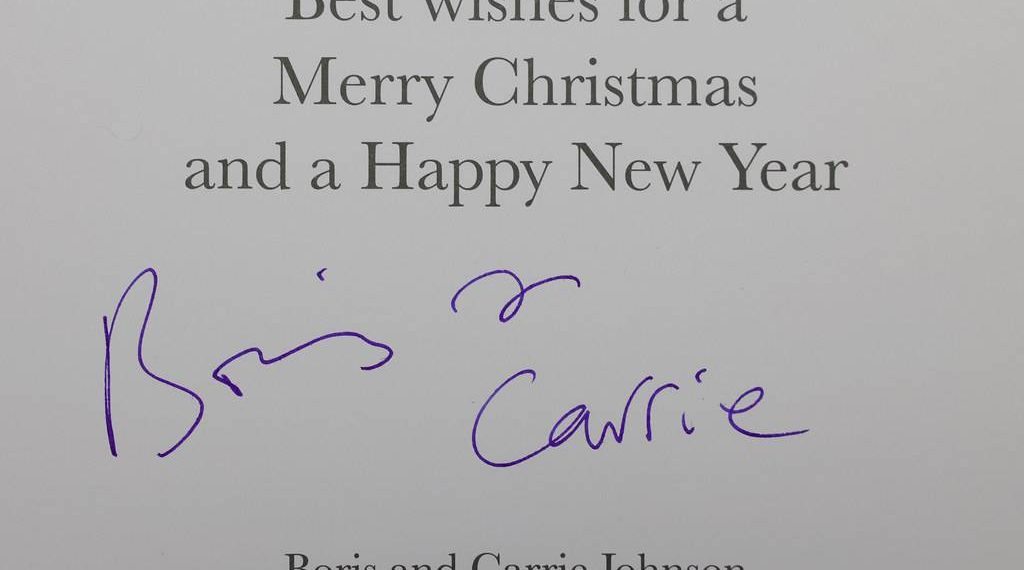 Best wishes for a
Merry Christmas
and a Happy New Year
Boris &
Carrie
Boris and Carrie Johnson